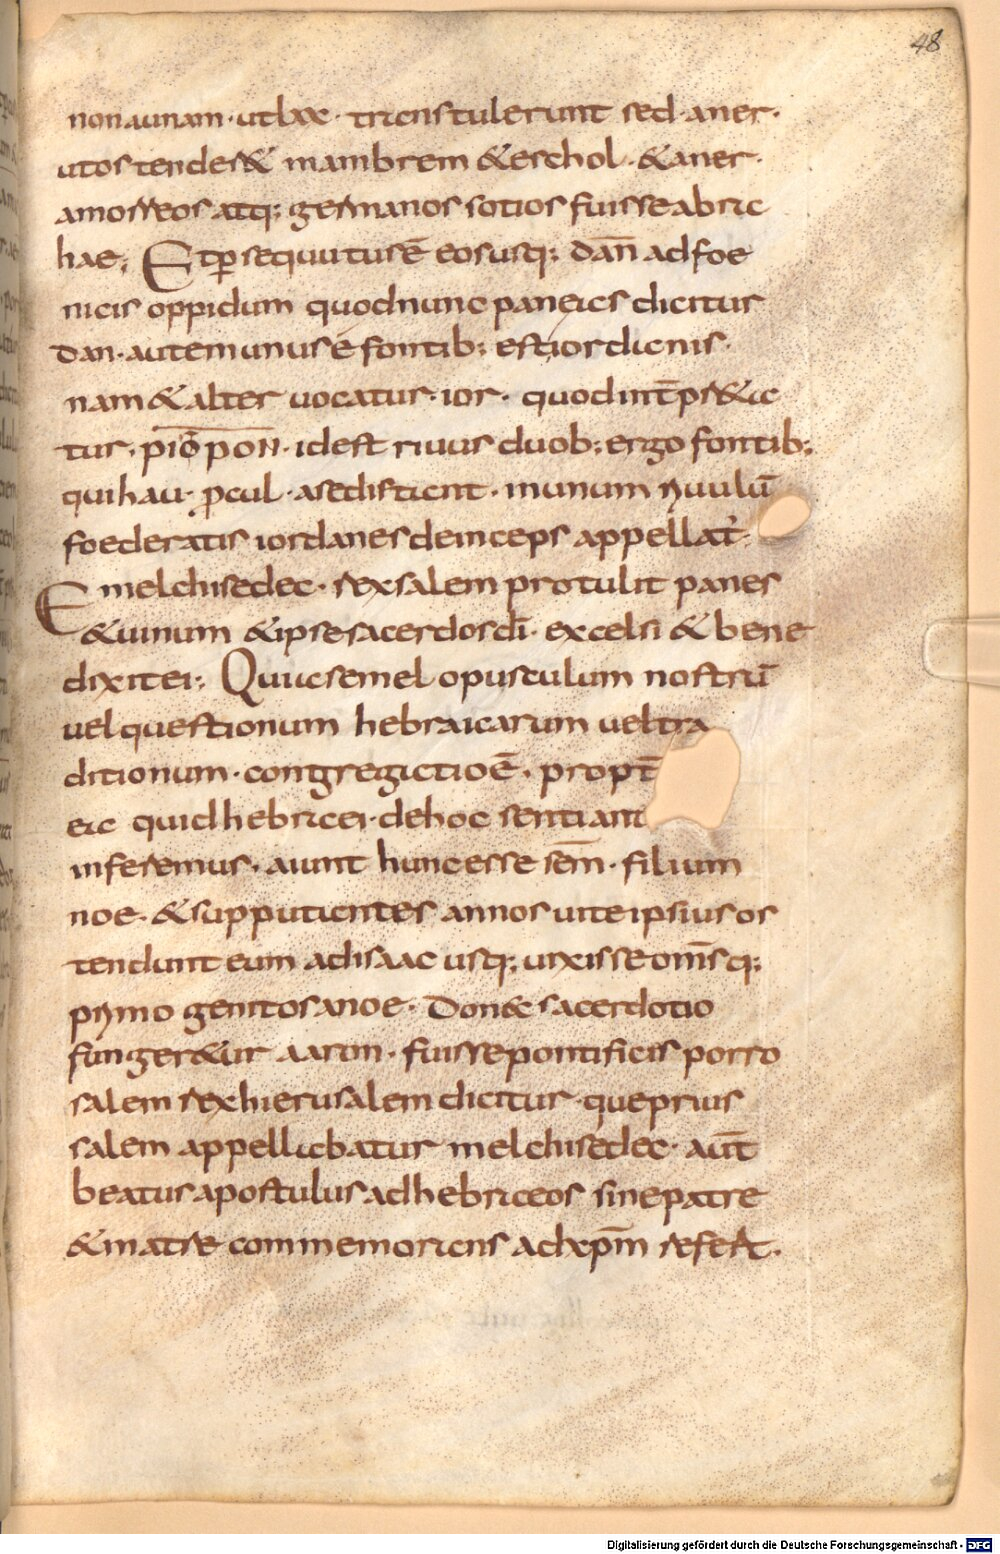 48
nonaunam · ut lxx · transtulerunt sed · aner ·
utostender& mambrem & eschol · & aner ·
amorreos atq; germanos sotios fuisse abra
hae; Et p̱sequutusē eos usq; dan̄ ad foe
nicis oppidum quod nunc paneas dicitur
dan · autem unus ē fontib; est iordanis ·
nam & alter uocatur · ior · quod int̄pr&a
tur · piōpon · id est riuus duob; ergo fontib;
qui hau · procul · a se distant · in unum riuulū
foederatis iordanes deinceps appellat᷑;
E melchisedec · rex salem protulit panes
& uinum & ipse sacerdos dī · excelsi & bene
dixit ei; Quia semel opusculum nostrū
uel questionum hebraicarum uel tra
ditionum · congregatioē · propt̄
ea quid hebraei · de hoc sentiant
inferemus · aiunt hunc esse sēm · filium
noe · & supputantes annos uite ipsius os
tendunt eum ad isaac usq; uixisse om̄sq;
primogenitos a noe · Don& sacerdotio
funger&ur aaron · fuisse pontificis porro
salem rex hierusalem dicitur · que prius
salem appellabatur melchisedec · aut̄
beatus apostulus ad hebraeos sine patre
& matre commemorans ad xp̄m refert ·
Digitalisierung gefördert durch die Deutsche Forschungsgemeinschaft - DFG